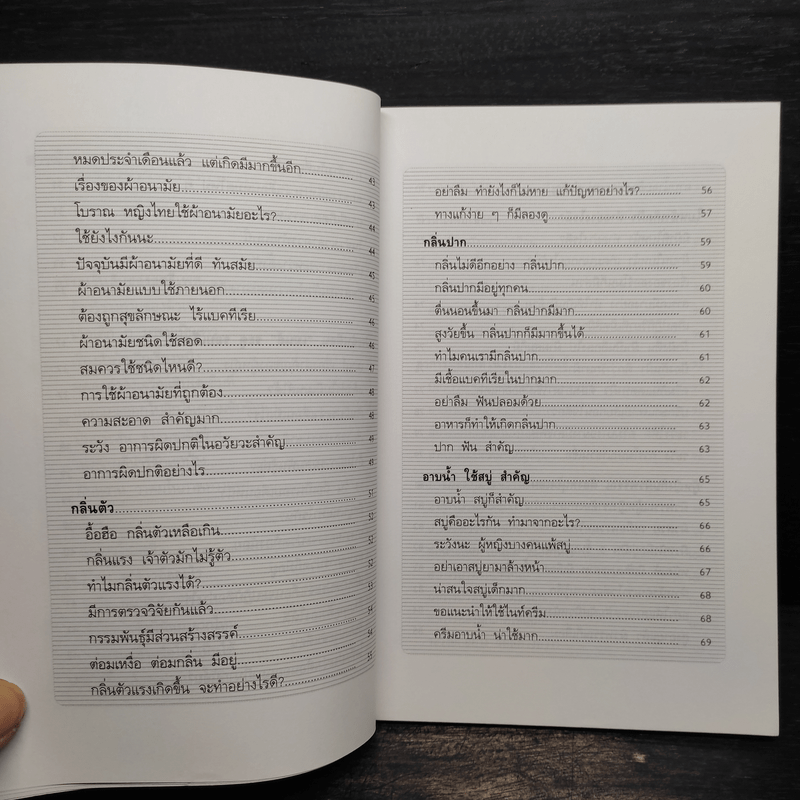 หมดประจำเดือนแล้ว แต่เกิดมีมากขึ้นอีก.....43
เรื่องของผ้าอนามัย.....43
โบราณ หญิงไทยใช้ผ้าอนามัยอะไร?.....44
ใช้ยังไงกันนะ.....44
ปัจจุบันมีผ้าอนามัยที่ดี ทันสมัย.....45
ผ้าอนามัยแบบใช้ภายนอก.....45
ต้องถูกสุขลักษณะ ไร้แบคทีเรีย.....46
ผ้าอนามัยชนิดใช้สอด.....46
สมควรใช้ชนิดไหนดี?.....47
การใช้ผ้าอนามัยที่ถูกต้อง.....48
ความสะอาด สำคัญมาก.....48
ระวัง อาการผิดปกติในอวัยวะสำคัญ.....49
อาการผิดปกติอย่างไร.....49
กลิ่นตัว.....51
อื้อฮือ กลิ่นตัวเหลือเกิน.....52
กลิ่นแรง เจ้าตัวมักไม่รู้ตัว.....52
ทำไมกลิ่นตัวแรงได้?.....52
มีการตรวจวิจัยกันแล้ว.....53
กรรมพันธุ์มีส่วนสร้างสรรค์.....54
ต่อมเหงื่อ ต่อมกลิ่น มีอยู่.....54
กลิ่นตัวแรงเกิดขึ้น จะทำอย่างไรดี?.....55
อย่าลืม ทำยังไงก็ไม่หาย แก้ปัญหาอย่างไร?.....56
ทางแก้ง่าย ๆ ก็มีลองดู.....57
กลิ่นปาก.....59
กลิ่นไม่ดีอีกอย่าง กลิ่นปาก.....59
กลิ่นปากมีอยู่ทุกคน.....60
ตื่นนอนขึ้นมา กลิ่นปากมีมาก.....60
สูงวัยขึ้น กลิ่นปากก็มีมากขึ้นได้.....61
ทำไมคนเรามีกลิ่นปาก.....61
มีเชื้อแบคทีเรียในปากมาก.....62
อย่าลืม ฟันปลอมด้วย.....62
อาหารก็ทำให้เกิดกลิ่นปาก.....63
ปาก ฟัน สำคัญ.....63
อาบน้ำ ใช้สบู่ สำคัญ.....65
อาบน้ำ สบู่ก็สำคัญ.....65
สบู่คืออะไรกัน ทำมาจากอะไร?.....66
ระวังนะ ผู้หญิงบางคนแพ้สบู่.....66
อย่าเอาสบู่ยามาล้างหน้า.....67
น่าสนใจสบู่เด็กมาก.....68
ขอแนะนำให้ใช้ไนท์ครีม.....68
ครีมอาบน้ำ น่าใช้มาก.....69